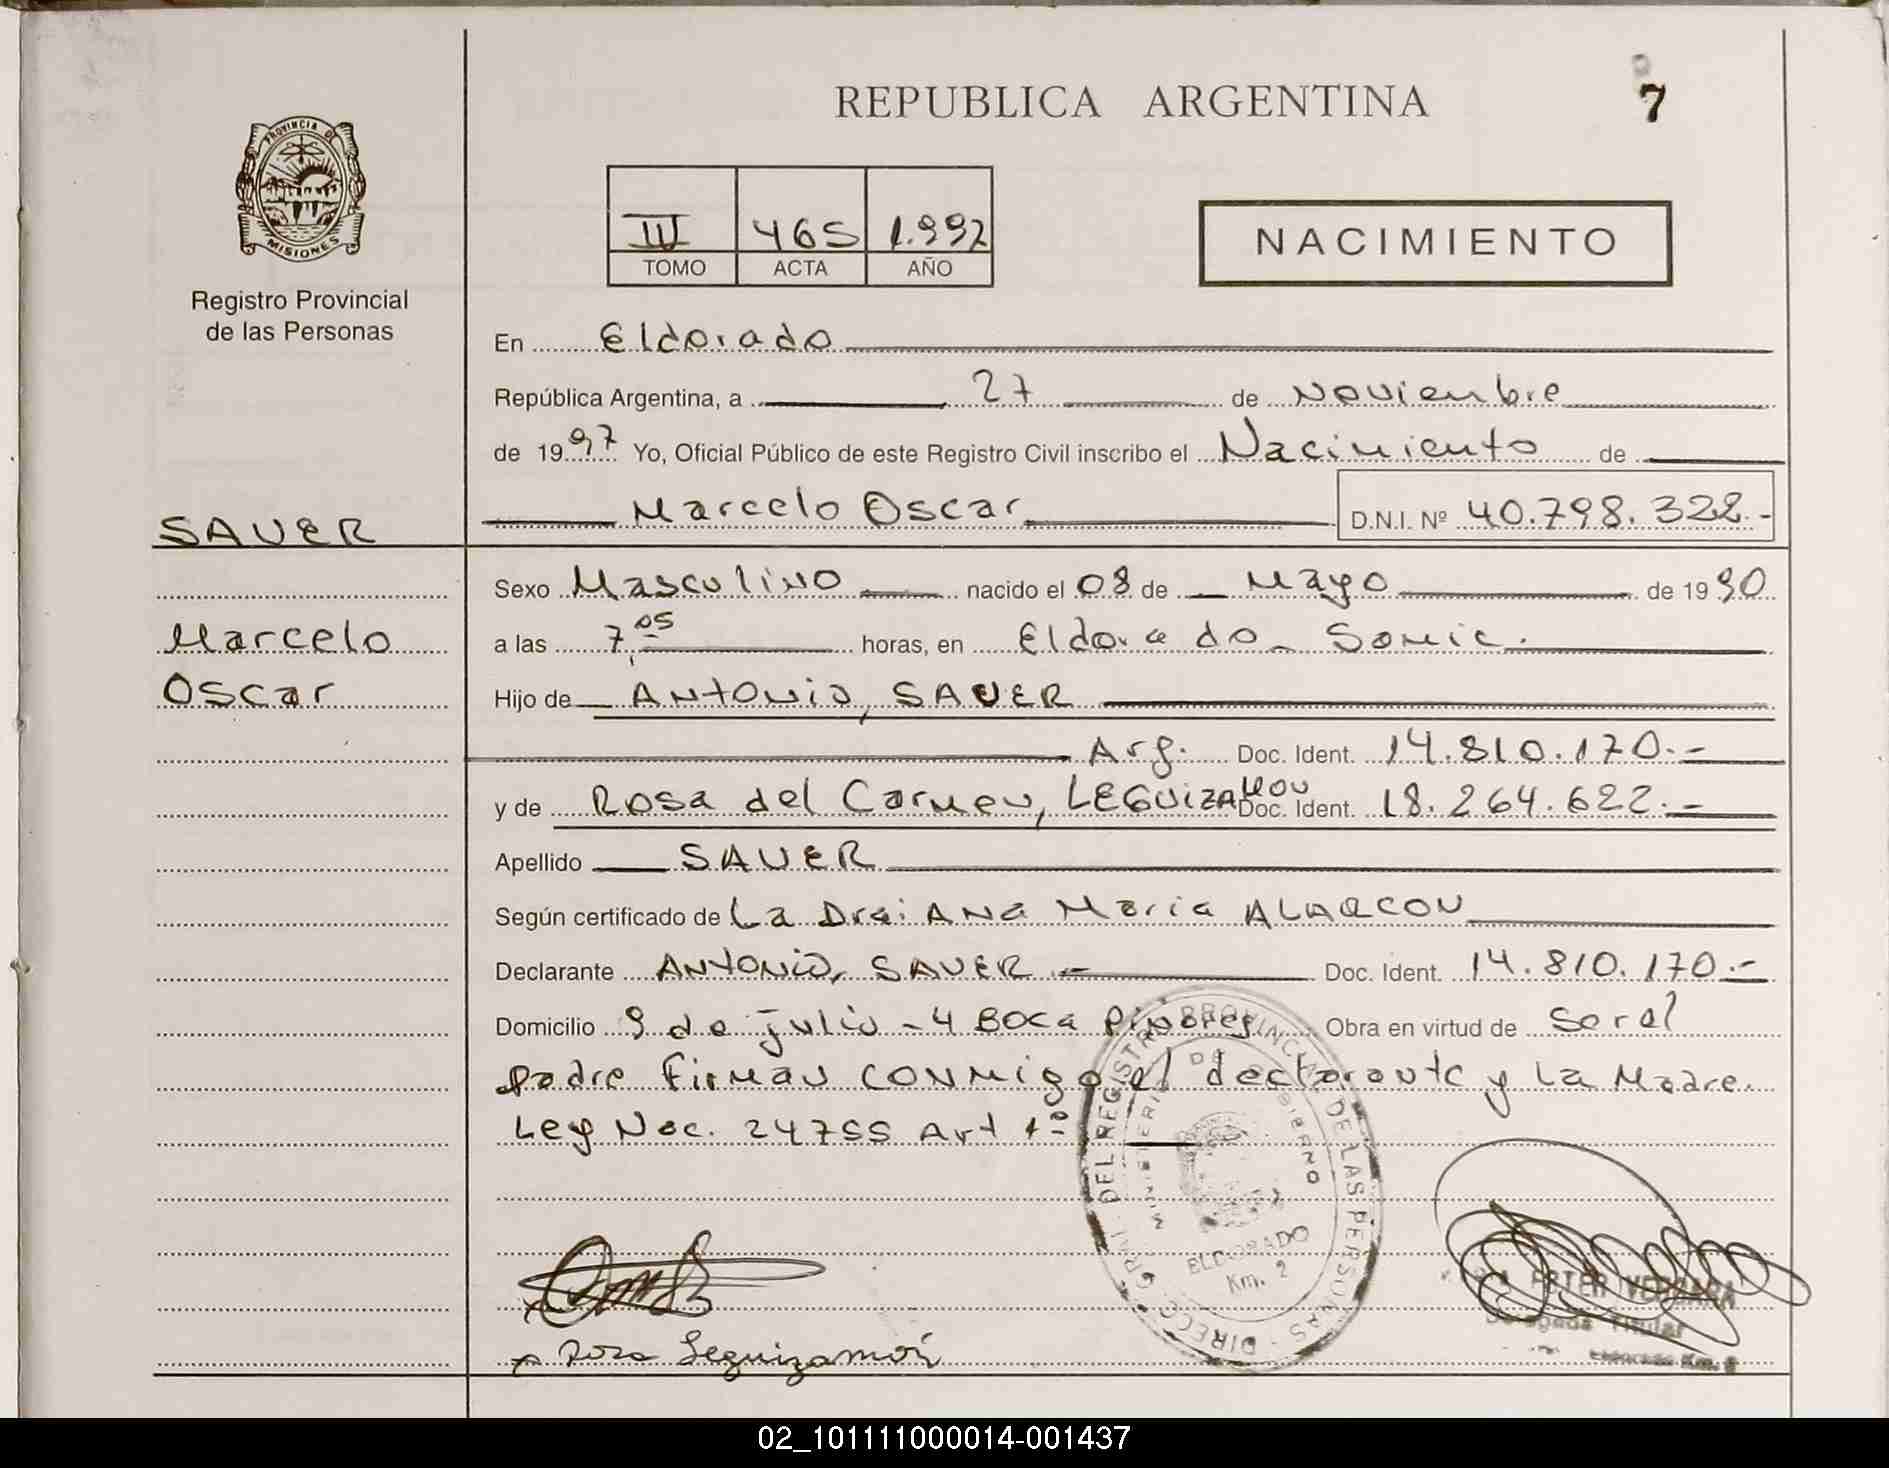 REPUBLICA ARGENTINA
7
PROVINCIA DE
MISIONES
Registro Provincial
de las Personas
III 465 1.992
TOMO ACTA AÑO
NACIMIENTO
En Eldorado
República Argentina, a 27 de Noviembre
de 1997 Yo, Oficial Público de este Registro Civil inscribo el Nacimiento de
Marcelo Oscar D.N.I. Nº 40.798.322.-
SAUER
Sexo Masculino nacido el 08 de Mayo de 1990
Marcelo
a las 7,05 horas, en Eldorado - Samic.
Oscar
Hijo de ANTONIO, SAUER
Arg. Doc. Ident. 14.810.170.-
y de Rosa del Carmen, LEGUIZAMON Doc. Ident. 18.264.622.-
Apellido SAUER
Según certificado de La Dra: ANA Maria ALARCON
Declarante ANTONIO, SAUER.- Doc. Ident. 14.810.170.-
Domicilio 9 de julio - 4 BOCA Pinares Obra en virtud de Ser el
padre Firman CONMigo el declarante y La Madre.
Ley Nac. 24755 Art 1º
DIRECC. GRAL. DEL REGISTRO PROVINCIAL DE LAS PERSONAS
MINISTERIO DE GOBIERNO
ELDORADO
Km. 2
VERGARA
Delegada Titular
Eldorado Km.
x Rosa Leguizamón
02_101111000014-001437